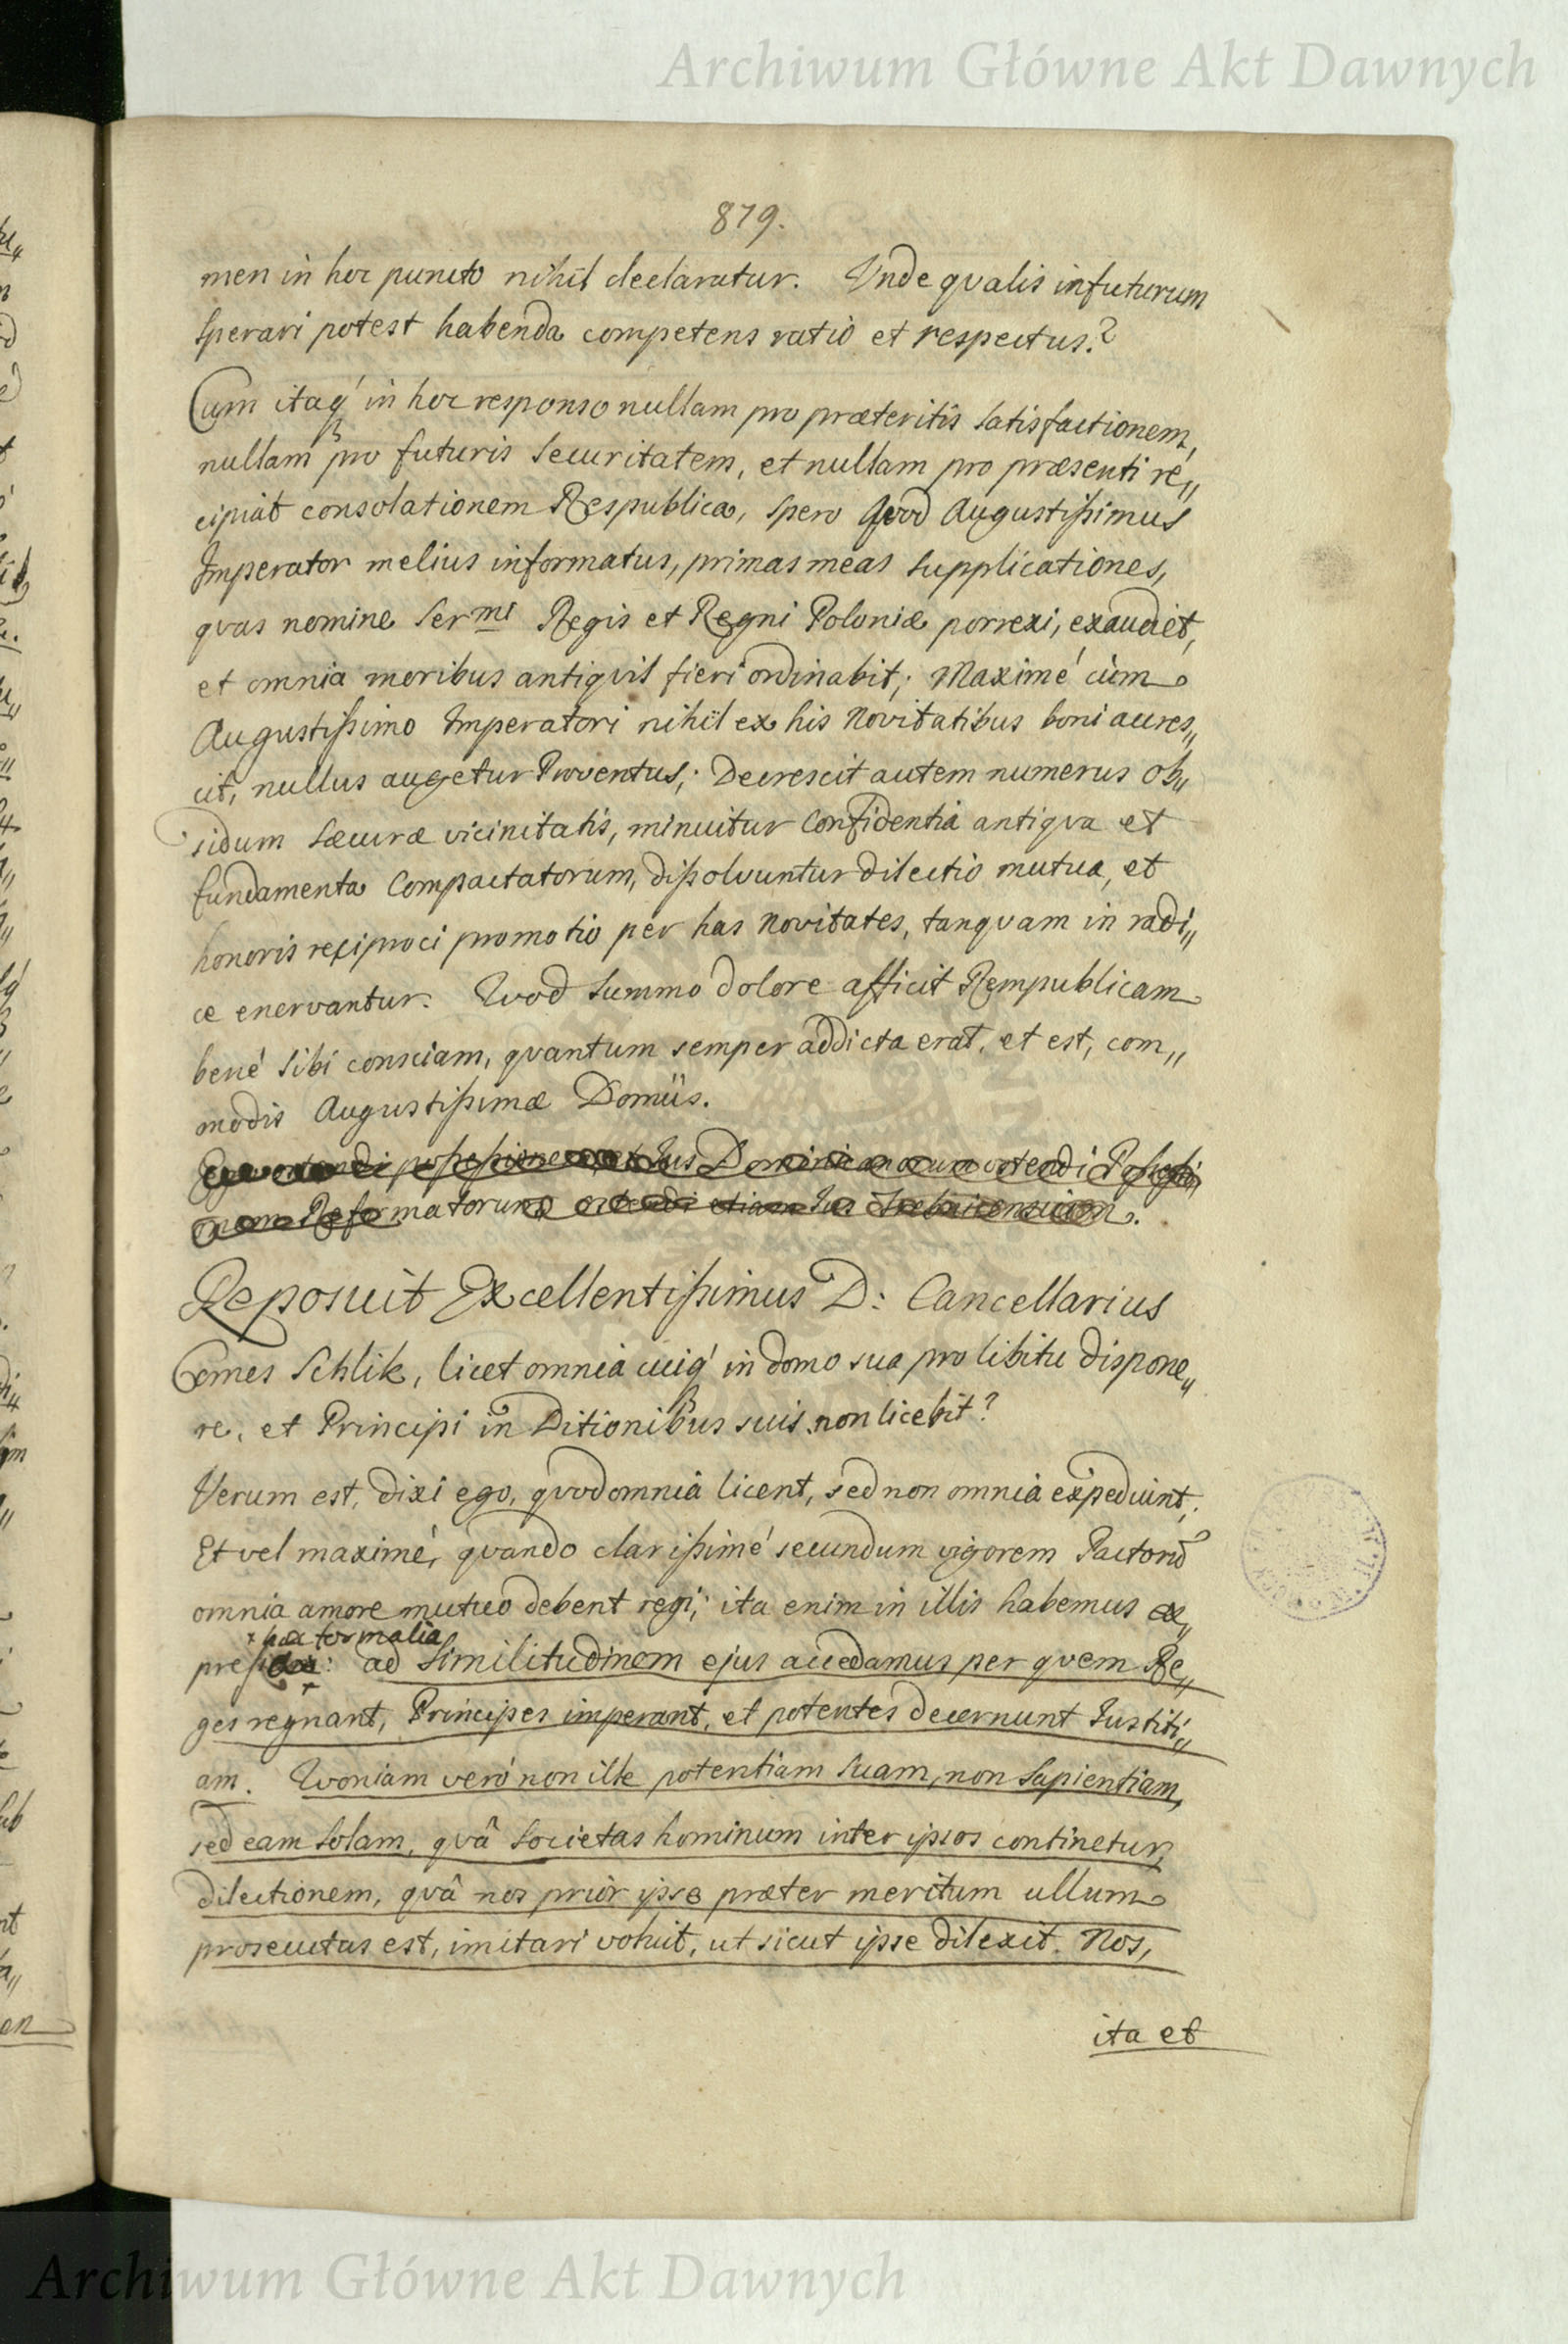 Archiwum Główne Akt Dawnych
879.
men in hoc puncto nihil declaratur. Unde qvalis in futurum
sperari potest habenda competens ratio et respectus?
Cum itaq́ in hoc responso nullam pro præteritis satisfactionem,
nullam pro futuris securitatem, et nullam pro præsenti re„
cipiat consolationem Respublica, spero qvod Augustißimus
Imperator melius informatus, primas meas supplicationes,
qvas nomine Ser.mi Regis et Regni Poloniæ porrexi, exaudiet,
et omnia moribus antiqvis fieri ordinabit; Maximé cùm
Augustißimo Imperatori nihil ex his Novitatibus boni accres„
cit, nullus augetur Proventus; Decrescit autem numerus ob„
sidum securæ vicinitatis, minuitur Confidentia antiqva et
fundamenta Compactatorum, dißolvuntur dilectio mutua, et
honoris reciproci promotio per has Novitates, tanqvam in radi„
ce enervantur. Qvod summo dolore afficit Rempublicam
bené sibi consciam, qvantum semper addicta erat, et est, com„
modis Augustißimæ Domûs.
poßeßionem Jus Dominicanorum ostendi Poßeßi„
onem Reformatorum ostendi etiam Jus
Reposuit Excellentißimus D: Cancellarius
Comes Schlik, licet omnia cuiq́ in domo sua pro libitu dispone„
re, et Principi in Ditionibus suis non licebit?
Verum est, dixi ego, qvod omnia licent, sed non omnia expediunt;
Et vel maximé, qvando clarißimé secundum vigorem Pactorũ
omnia amore mutuo debent regi; ita enim in illis habemus ex„
× hæc formalia
preß: ad Similitudinem ejus accedamus per qvem Re„
ges regnant, Principes imperant, et potentes decernunt Justiti„
am. Qvoniam veró non ille potentiam suam, non Sapientiam,
sed eam solam, qvâ Societas hominum inter ipsos continetur,
dilectionem, qvâ nos prior ipse præter meritum ullum
prosecutus est, imitari voluit, ut sicut ipse dilexit Nos,
ita et
Archiwum Główne Akt Dawnych